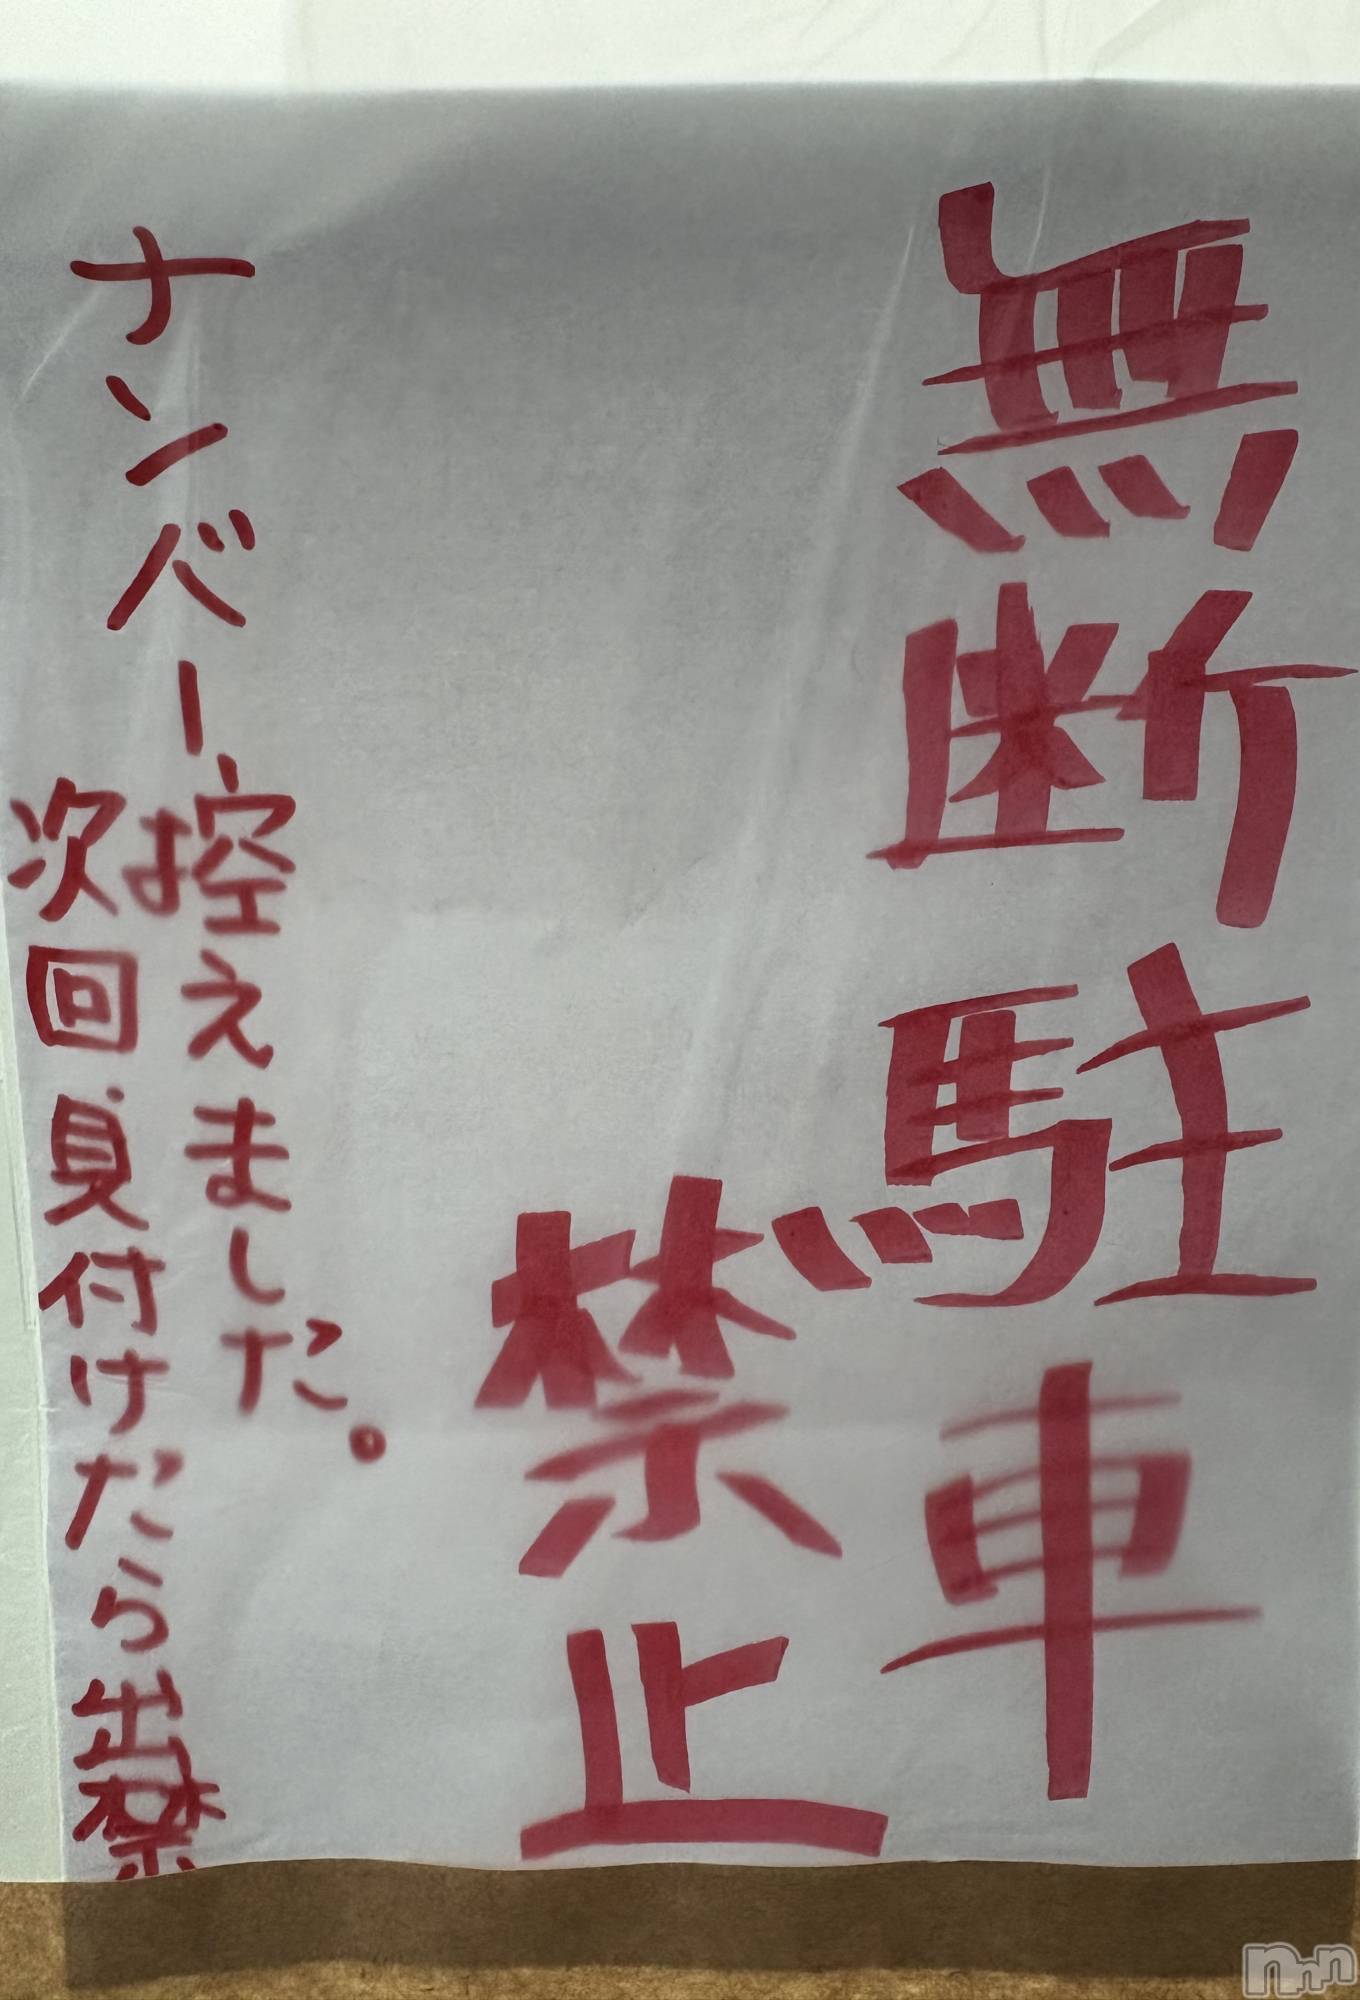 無断駐車
禁止
ナンバーお控えました。
次回見付けたら出禁
nnn